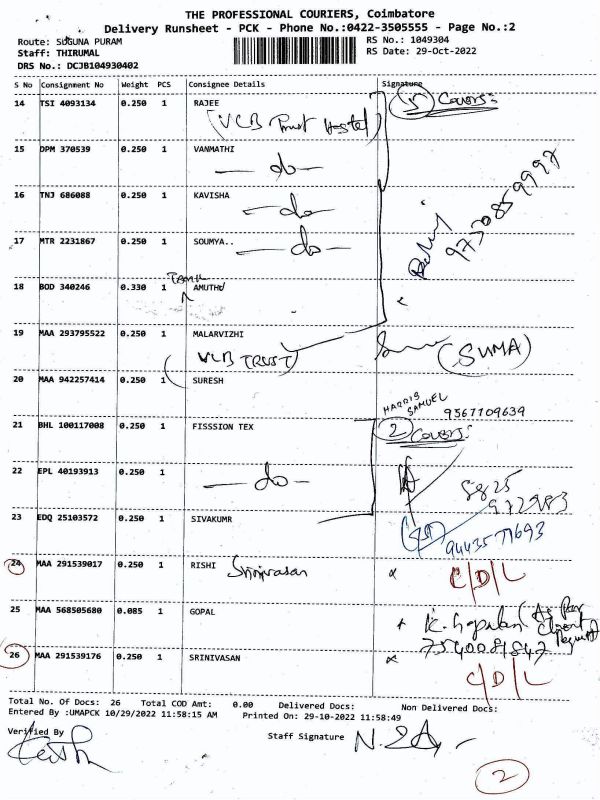 THE PROFESSIONAL COURIERS, Coimbatore
Delivery Runsheet - PCK - Phone No.:0422-3505555 - Page No.:2
Route: SUGUNA PURAM
Staff: THIRUMAL
DRS No.: DCJB104930402
RS No.: 1049304
RS Date: 29-Oct-2022
S No Consignment No Weight PCS Consignee Details Signature
14 TSI 4093134 0.250 1 RAJEE
(VLB Trust Hostel)
5 Covers:
15 DPM 370539 0.250 1 VANMATHI
— do —
16 TNJ 686088 0.250 1 KAVISHA
— do —
9730859997
17 MTR 2231867 0.250 1 SOUMYA..
— do —
18 BOD 340246 0.330 1 TAMIL AMUTHU
19 MAA 293795522 0.250 1 MALARVIZHI
(VLB TRUST)
(SUMA)
20 MAA 942257414 0.250 1 SURESH
HARRIS SAMUEL
9567109639
21 BHL 100117008 0.250 1 FISSSION TEX
2 Covers:
22 EPL 40193913 0.250 1
— do —
23 EDQ 25103572 0.250 1 SIVAKUMR
24 MAA 291539017 0.250 1 RISHI Srinivasan
x C/D/L
25 MAA 568505680 0.085 1 GOPAL
K. Gopalan (As Per Client Request)
26 MAA 291539176 0.250 1 SRINIVASAN
x C/D/L
Total No. Of Docs: 26 Total COD Amt: 0.00 Delivered Docs: Non Delivered Docs:
Entered By :UMAPCK 10/29/2022 11:58:15 AM Printed On: 29-10-2022 11:58:49
Verified By
Staff Signature
2